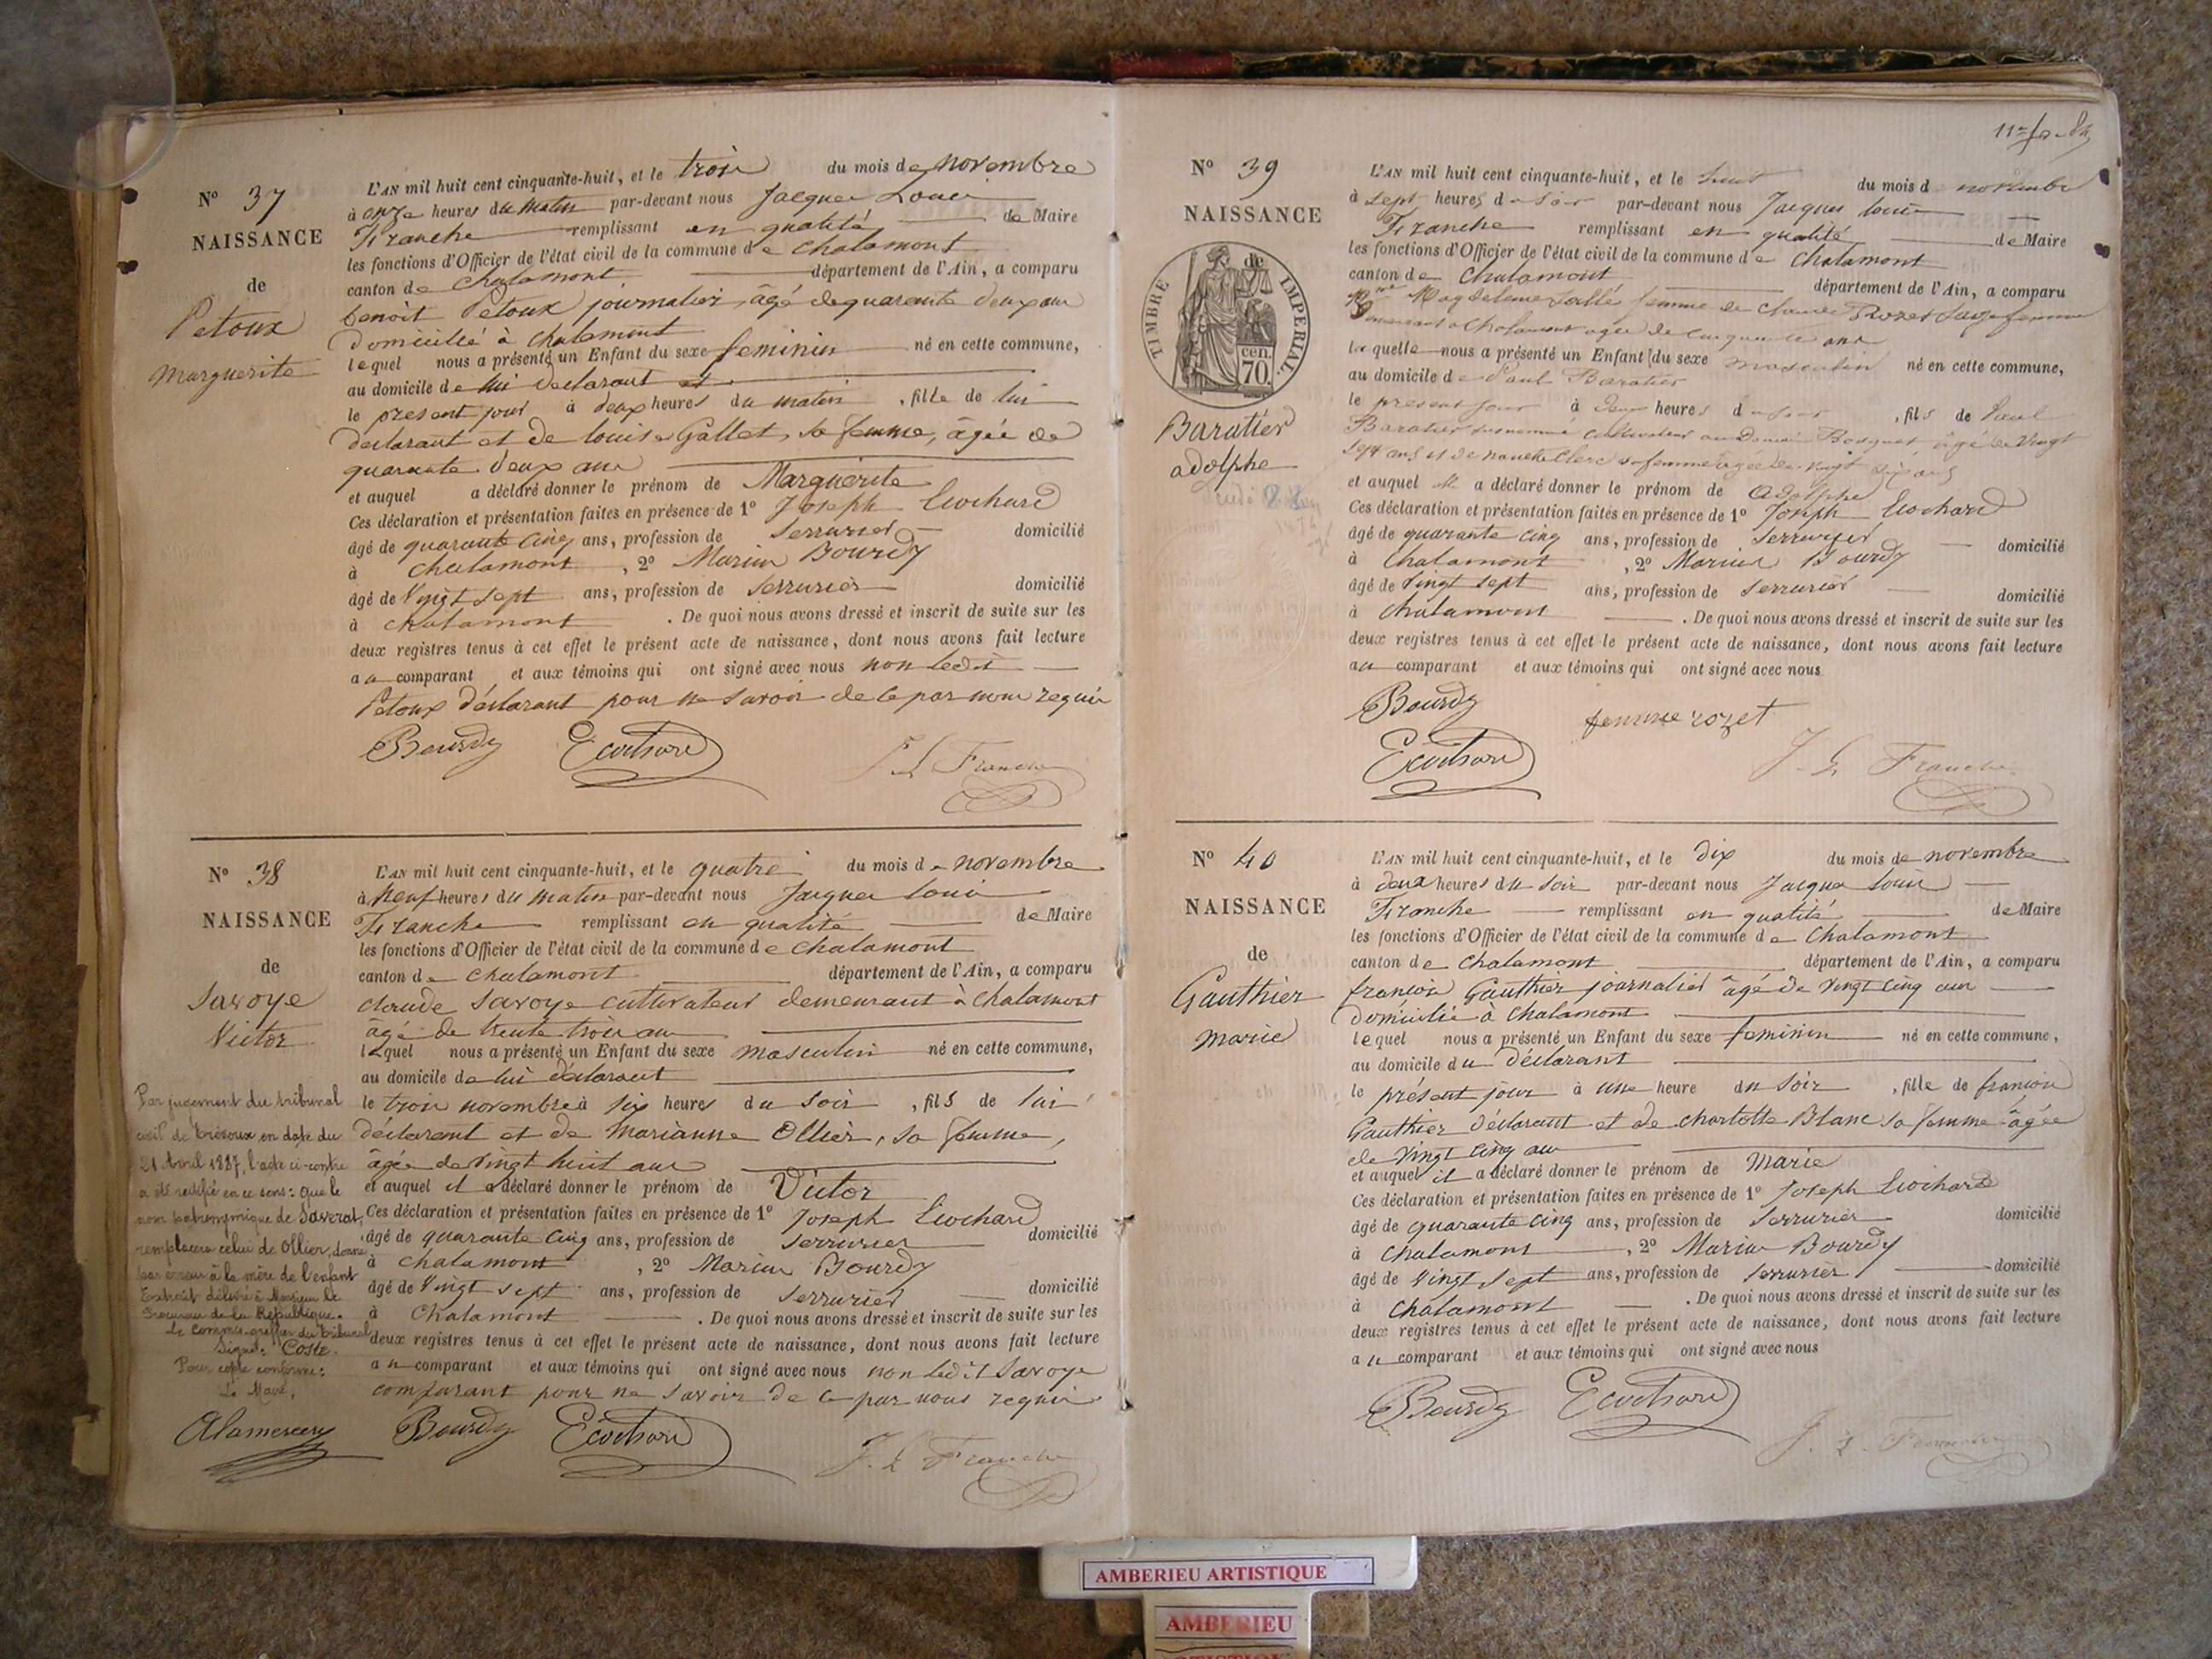 N° 37
NAISSANCE
de
Petoux
Marguerite
L'AN mil huit cent cinquante-huit, et le trois du mois de novembre
à onze heures du matin par-devant nous Jacques Louis
Franche remplissant en qualité de Maire
les fonctions d'Officier de l'état civil de la commune de Chalamont
canton de Chalamont département de l'Ain, a comparu
benoit Petoux journalier, âgé de quarante deux ans
Domicilié à Chalamont
lequel nous a présenté un Enfant du sexe feminin né en cette commune,
au domicile de lui déclarant et
le present jour à deux heures du matin, fille de lui
declarant et de louise Gallet, sa femme, âgée de
quarante deux ans
et auquel a déclaré donner le prénom de Marguerite
Ces déclaration et présentation faites en présence de 1° Joseph Ecochard
âgé de quarante cinq ans, profession de Serrurier domicilié
à chalamont, 2° Marius Bourdy
âgé de Vingt sept ans, profession de Serrurier domicilié
à chalamont. De quoi nous avons dressé et inscrit de suite sur les
deux registres tenus à cet effet le présent acte de naissance, dont nous avons fait lecture
au comparant et aux témoins qui ont signé avec nous non ledit
Petoux déclarant pour ne savoir de ce par nous requis
Bourdy Ecochard J L Franche
N° 38
NAISSANCE
de
Savoye
Victor
L'AN mil huit cent cinquante-huit, et le quatre du mois de novembre
à Neuf heures du matin par-devant nous Jacques Louis
Franche remplissant en qualité de Maire
les fonctions d'Officier de l'état civil de la commune de Chalamont
canton de Chalamont département de l'Ain, a comparu
claude Savoye cultivateur demeurant à Chalamont
âgé de trente trois ans
lequel nous a présenté un Enfant du sexe masculin né en cette commune,
au domicile de lui déclarant
le trois novembre à six heures du Soir, fils de lui
déclarant et de Marianne Ollier, sa femme,
âgée de vingt huit ans
et auquel il a déclaré donner le prénom de Victor
Ces déclaration et présentation faites en présence de 1° Joseph Ecochard
âgé de quarante cinq ans, profession de Serrurier domicilié
à Chalamont, 2° Marius Bourdy
âgé de Vingt sept ans, profession de Serrurier domicilié
à Chalamont. De quoi nous avons dressé et inscrit de suite sur les
deux registres tenus à cet effet le présent acte de naissance, dont nous avons fait lecture
au comparant et aux témoins qui ont signé avec nous non ledit Savoye
comparant pour ne savoir de ce par nous requis
Par jugement du tribunal
civil de Trévoux en date du
21 Avril 1887, l'acte ci-contre
a été rectifié en ce sens: que le
nom patronymique de Saverat,
remplacera celui de Ollier, donné
par erreur à la mère de l'enfant
Extrait délivré à Monsieur le
Procureur de la République.
Le commis-greffier du tribunal
Signé: Coste.
Pour copie conforme:
Le Maire,
Alamercery Bourdy Ecochard J. L Franche
11e fo
N° 39
NAISSANCE
de
TIMBRE IMPERIAL.
cen.
70.
Baratier
adolphe
L'AN mil huit cent cinquante-huit, et le huit du mois d novembre
à Sept heures du Soir par-devant nous Jacques Louis
Franche remplissant en qualité de Maire
les fonctions d'Officier de l'état civil de la commune de Chalamont
canton de Chalamont département de l'Ain, a comparu
Magdeleine femme de claude Rozet Sage femme
demeurant à Chalamont agée de cinquante ans
laquelle nous a présenté un Enfant du sexe masculin né en cette commune,
au domicile de Paul Baratier
le present jour à heures du soir, fils de Paul
Baratier cultivateur au Domaine Bosquet âgé de Vingt
Sept ans et de sa femme agée de vingt ans
et auquel a déclaré donner le prénom de Adolphe
Ces déclaration et présentation faites en présence de 1° Joseph Ecochard
âgé de quarante cinq ans, profession de Serrurier domicilié
à Chalamont, 2° Marius Bourdy
âgé de Vingt sept ans, profession de Serrurier domicilié
à Chalamont. De quoi nous avons dressé et inscrit de suite sur les
deux registres tenus à cet effet le présent acte de naissance, dont nous avons fait lecture
au comparant et aux témoins qui ont signé avec nous
Bourdy femme rozet
Ecochard J. L Franche
N° 40
NAISSANCE
de
Gauthier
marie
L'AN mil huit cent cinquante-huit, et le dix du mois de novembre
à deux heures du soir par-devant nous Jacques Louis
Franche remplissant en qualité de Maire
les fonctions d'Officier de l'état civil de la commune de Chalamont
canton de Chalamont département de l'Ain, a comparu
françois Gauthier journalier âgé de vingt cinq ans
Domicilié à Chalamont
lequel nous a présenté un Enfant du sexe feminin né en cette commune,
au domicile du Déclarant
le présent jour à une heure du Soir, fille de françois
Gauthier déclarant et de charlotte Blanc sa femme âgée
de Vingt cinq ans
et auquel il a déclaré donner le prénom de Marie
Ces déclaration et présentation faites en présence de 1° Joseph Ecochard
âgé de quarante cinq ans, profession de Serrurier domicilié
à Chalamont, 2° Marius Bourdy
âgé de Vingt sept ans, profession de Serrurier domicilié
à Chalamont. De quoi nous avons dressé et inscrit de suite sur les
deux registres tenus à cet effet le présent acte de naissance, dont nous avons fait lecture
au comparant et aux témoins qui ont signé avec nous
Bourdy Ecochard J. L. Franche
AMBERIEU ARTISTIQUE
AMBERIEU
ARTISTIQUE